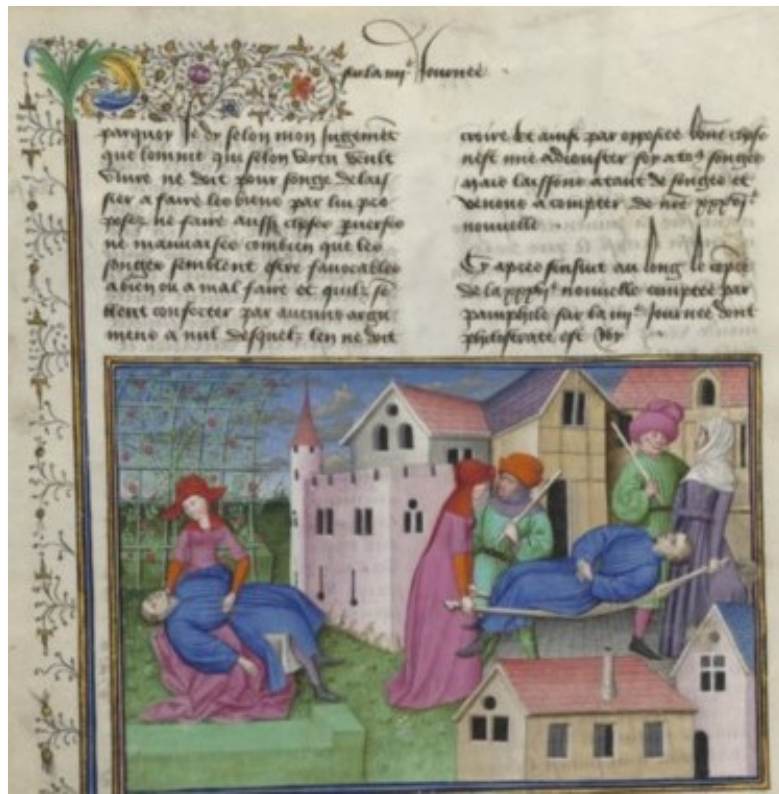 sur la iiii.e Journée
parquoy Je dy selon mon Jugemēt
que lomme qui selon vertu veult
viure ne doit pour songe delais
sier a faire les biens par lui pro
posez ne faire aussi choses peruerses
ne mauuaises combien que les
songes semblent estre fauorables
a bien ou a mal faire et quilz se
conforter par aucuns argu
mens a nul desquelz len ne doit
croire et ainsi par opposite chose
nest mie adiouster foy a telz songes
mais laissons atant de songes et
venons a compter de nrē xxxvi.e
nouuelle
Cy apres sensuit au long le
de la xxxvi.e nouuelle comptee par
pamphile sur la iiii.e Journee dont
philistrate est Roy